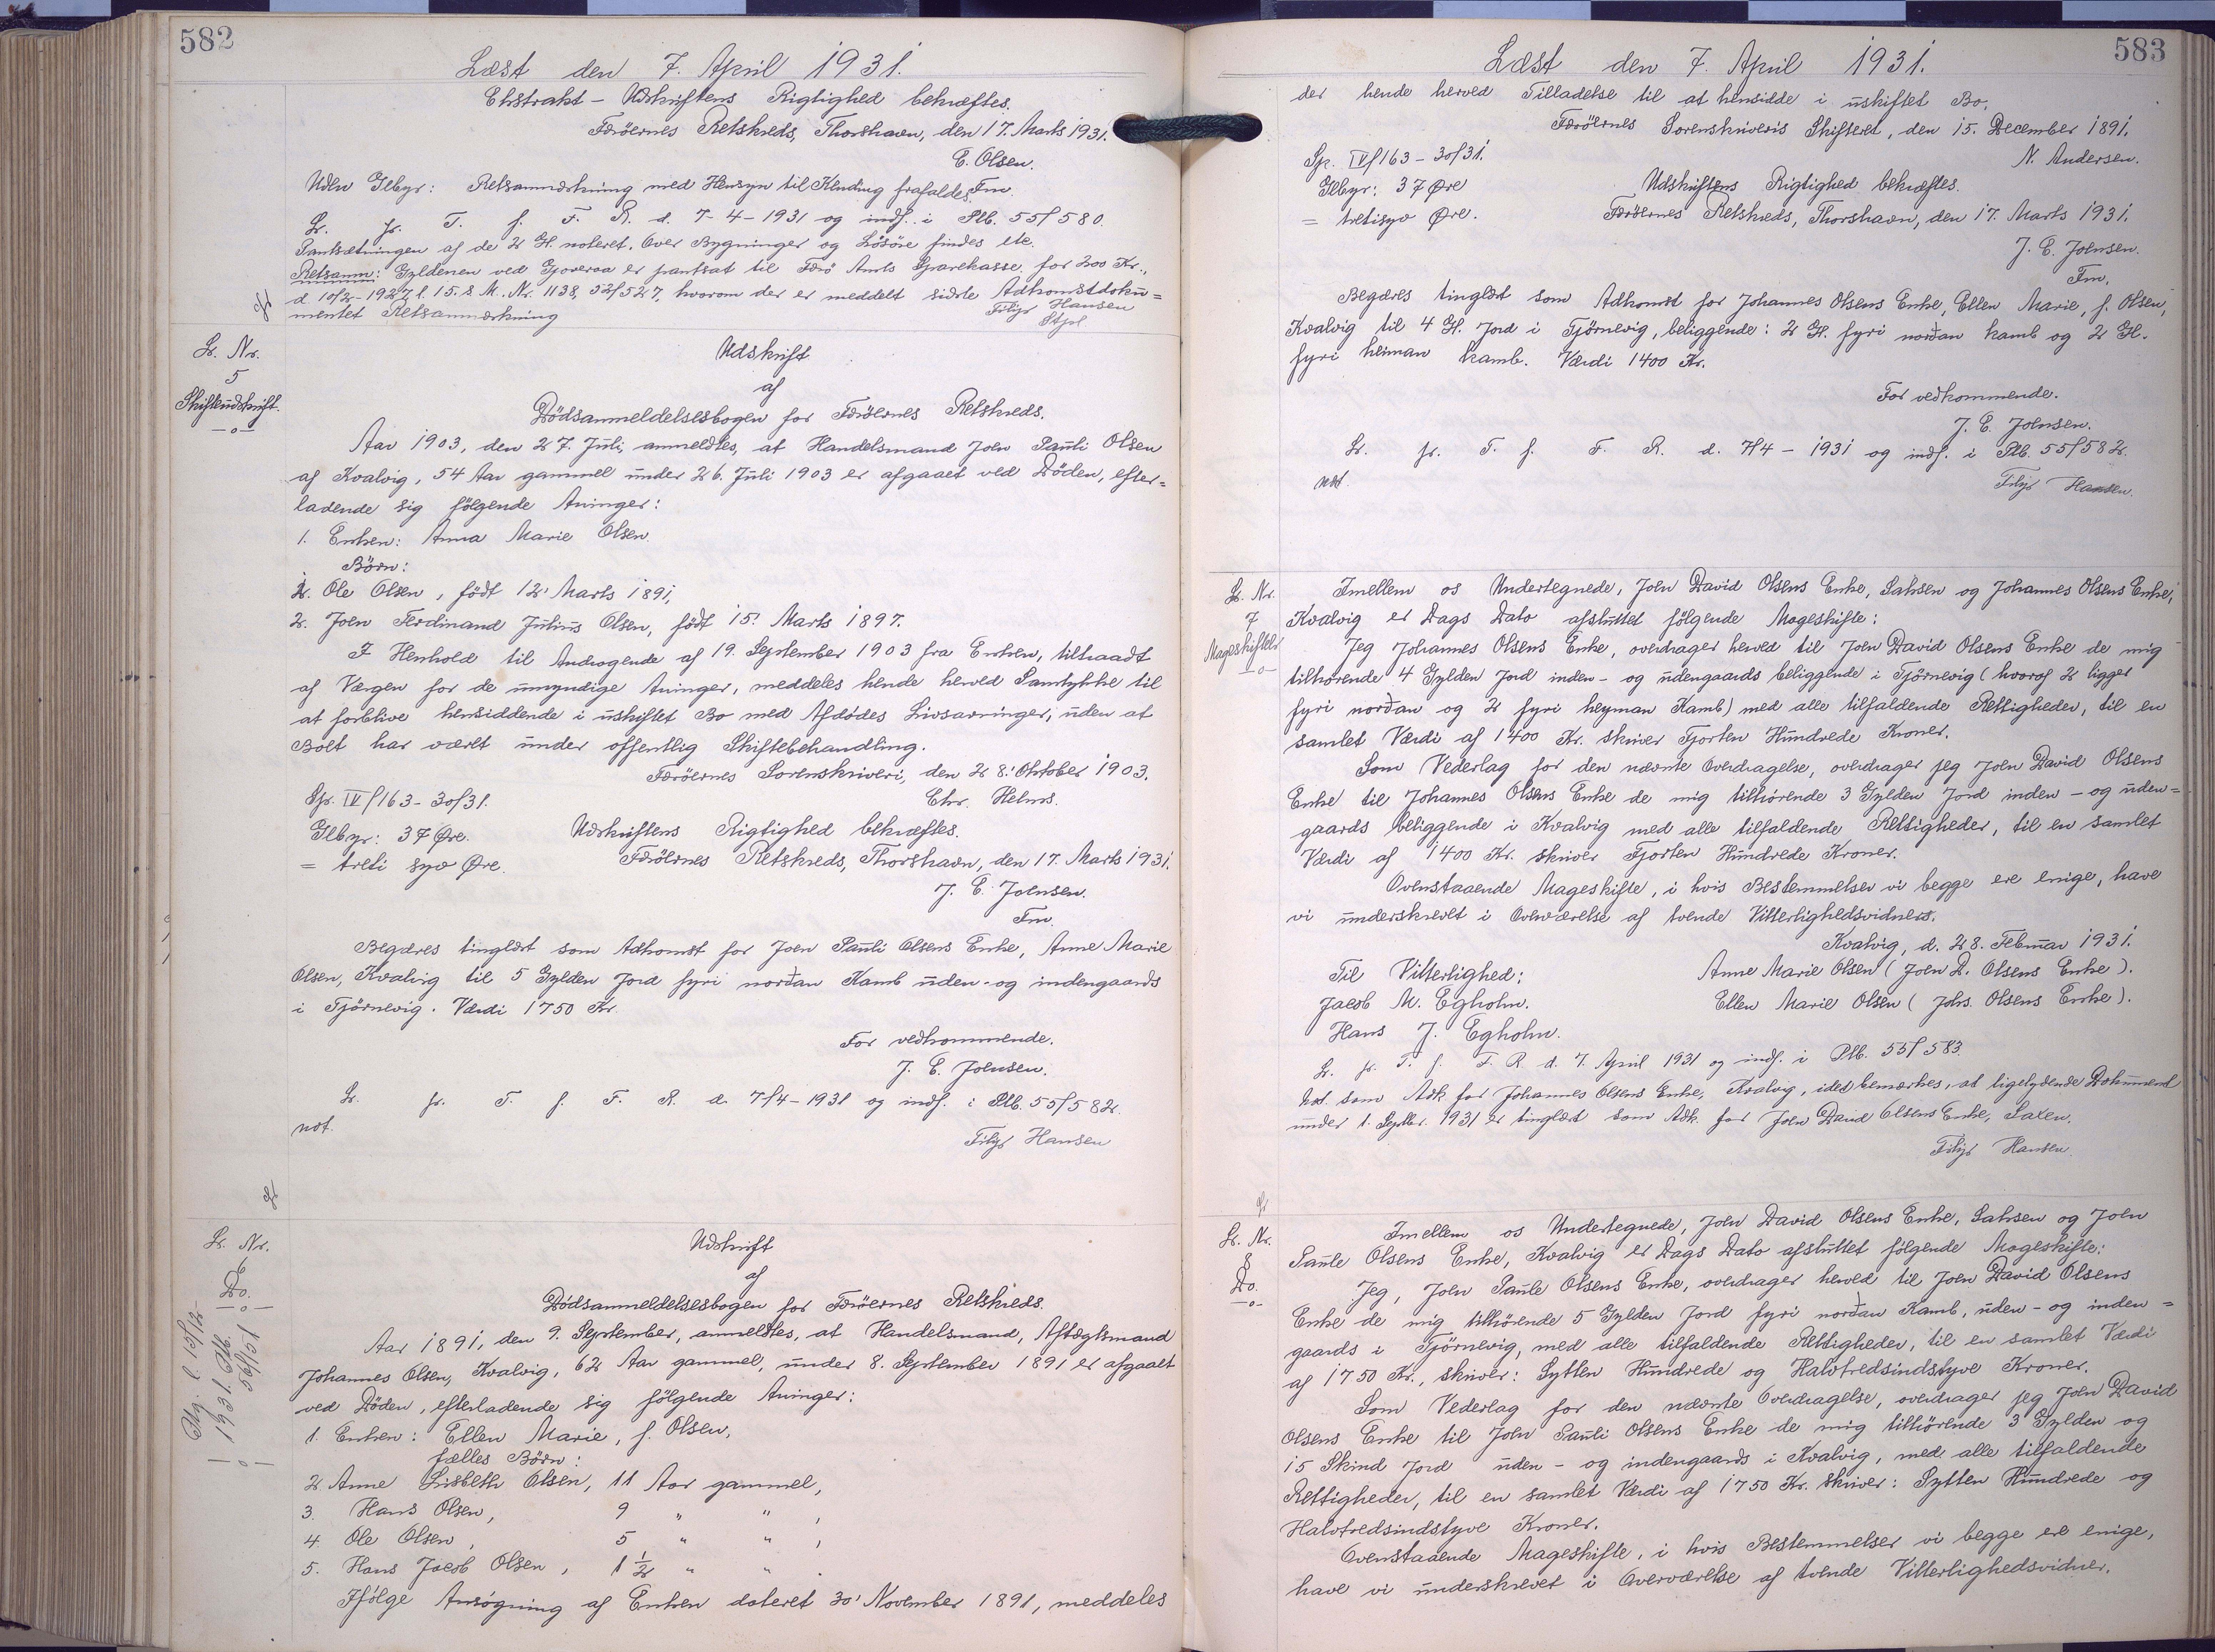 582
Læst den 7. April 1931.
Ekstrakt - Udskriftens Rigtighed bekræftes.
Færöernes Retskreds, Thorshavn, den 17. Marts 1931.
E. Olsen.
Fm.
Uden Gebyr: Retsanmærkning med Hensyn til Kending frafaldes.
Lr. fr. T. f. F. R. d. 7-4-1931 og indf. i Plb. 55f 580.
Pantsætningen af de 2 Gl. noteret. Over Bygninger og Lösöre findes etc.
Retsanm: Gyldenen ved Gjoveraa er pantsat til Færö Amts Sparekasse for 200 Kr.,
d. 10/2-1927, l. 15. s. M. Nr. 1138, 52f527, hvorom der er meddelt sidste Adkomstdoku=
mentet Retsanmærkning
Filip Hansen
Stfol
Lr. Nr.
5
Skifteudskrift.
-o-
Udskrift
af
Dödsanmeldelsesbogen for Færöernes Retskreds.
Aar 1903, den 27. Juli, anmeldtes, at Handelsmand Joen Pauli Olsen
af Kvalvig, 54 Aar gammel under 26. Juli 1903 er afgaaet ved Döden, efter=
ladende sig fölgende Arvinger:
1. Enken: Anna Marie Olsen.
Börn:
2. Ole Olsen, födt 12' Marts 1891,
2. Joen Ferdinand Julius Olsen, födt 15! Marts 1897.
I Henhold til Andragende af 19. September 1903 fra Enken, tiltraadt
af Værgen for de umyndige Arvinger, meddeles hende herved Samtykke til
at forblive hensiddende i uskiftet Bo med Afdödes Livsarvinger, uden at
Boet har været under offentlig Skiftebehandling.
Færöernes Sorenskriveri, den 28.' Oktober 1903.
Chr. Helms.
Sp. IV f 163-30/31.
Gebyr: 37 Øre.
= treti syv Øre.
Udskriftens Rigtighed bekræftes.
Færöernes Retskreds, Thorshavn, den 17. Marts 1931.
J. E. Joensen.
Fm.
Begæres tinglæst som Adkomst for Joen Pauli Olsens Enke, Anne Marie
Olsen, Kvalvig til 5 Gylden Jord fyri norðan Kamb uden- og indengaards
i Tjörnevig. Værdi 1750 Kr.
For vedkommende.
J. E. Joensen.
Lr. fr. T. f. F. R. d. 7/4-1931 og indf. i Plb. 55f582.
not.
Filip Hansen
Lr. Nr.
6
Do.
-o-
Udskrift
af
Dödsanmeldelsesbogen for Færöernes Retskreds.
Aar 1891, den 9. September, anmeldtes, at Handelsmand, Aftægtsmand
Johannes Olsen, Kvalvig, 62 Aar gammel, under 8. September 1891 er afgaaet
ved Döden, efterladende sig fölgende Arvinger:
1. Enken: Ellen Marie, f. Olsen,
fælles Börn:
2. Anne Lisbeth Olsen, 11 Aar gammel,
3. Hans Olsen, 9 " " ,
4. Ole Olsen, 5 " " ,
5. Hans Jacob Olsen, 1 1/2 " " .
Ifölge Ansögning af Enken dateret 30' November 1891, meddeles
583
Læst den 7. April 1931.
der hende herved Tilladelse til at hensidde i uskiftet Bo.
Færöernes Sorenskriveris Skifteret, den 15. December 1891.
N. Andersen.
Sp. IV f 163-30/31.
Gebyr: 37 Øre
= tretisyv Øre.
Udskriftens Rigtighed bekræftes.
Færöernes Retskreds, Thorshavn, den 17. Marts 1931.
J. E. Joensen.
Fm.
Begæres tinglæst som Adkomst for Johannes Olsens Enke, Ellen Marie, f. Olsen,
Kvalvig til 4 Gl. Jord i Tjörnevig, beliggende: 2 Gl. fyri norðan kamb og 2 Gl.
fyri heiman kamb. Værdi 1400 Kr.
For vedkommende.
J. E. Joensen.
Lr. fr. T. f. F. R. d. 7/4-1931 og indf. i Plb. 55f582.
not.
Filip Hansen.
Lr. Nr.
7
Mageskifte
-o-
Imellem os Undertegnede, Joen David Olsens Enke, Saksen og Johannes Olsens Enke,
Kvalvig er Dags Dato afsluttet fölgende Mageskifte:
Jeg Johannes Olsens Enke, overdrager herved til Joen David Olsens Enke de mig
tilhørende 4 Gylden Jord inden- og udengaards beliggende i Tjörnevig (hvoraf 2 ligger
fyri norðan og 2 fyri heyman Kamb) med alle tilfaldende Rettigheder, til en
samlet Værdi af 1400 Kr. skriver Fjorten Hundrede Kroner.
Som Vederlag for den nævnte Overdragelse, overdrager jeg Joen David Olsens
Enke til Johannes Olsens Enke de mig tilhörende 3 Gylden Jord inden- og uden=
gaards beliggende i Kvalvig med alle tilfaldende Rettigheder, til en samlet
Værdi af 1400 Kr. skriver Fjorten Hundrede Kroner.
Ovenstaaende Mageskifte, i hvis Bestemmelser vi begge ere enige, have
vi underskrevet i Overværelse af tvende Vitterlighedsvidner.
Kvalvig, d. 28. Februar 1931.
Til Vitterlighed:
Anne Marie Olsen (Joen D. Olsens Enke).
Jacob M. Egholm.
Ellen Marie Olsen (Johs. Olsens Enke).
Hans J. Egholm.
Lr. fr. T. f. F. R. d. 7. April 1931 og indf. i Plb. 55f 583.
Not. som Adk for Johannes Olsens Enke, Kvalvig, idet bemærkes, at ligelydende Dokument
under 1. Septbr. 1931 er tinglæst som Adk. for Joen David Olsens Enke, Saxen.
Filip Hansen.
Lr. Nr.
8
Do.
-o-
Imellem os Undertegnede, Joen David Olsens Enke, Saksen og Joen
Paule Olsens Enke, Kvalvig er Dags Dato afsluttet fölgende Mageskifte:
Jeg, Joen Paule Olsens Enke, overdrager herved til Joen David Olsens
Enke de mig tilhörende 5 Gylden Jord fyri norðan Kamb, uden- og inden=
gaards i Tjörnevig, med alle tilfaldende Rettigheder, til en samlet Værdi
af 1750 Kr., skriver: Sytten Hundrede og Halvtredsindstyve Kroner.
Som Vederlag for den nævnte Overdragelse, overdrager jeg Joen David
Olsens Enke til Joen Pauli Olsens Enke de mig tilhörende 3 Gylden og
15 Skind Jord uden- og indengaards i Kvalvig, med alle tilfaldende
Rettigheder, til en samlet Værdi af 1750 Kr. skriver: Sytten Hundrede og
Halvtredsindstyve Kroner.
Ovenstaaende Mageskifte, i hvis Bestemmelser vi begge ere enige,
have vi underskrevet i Overværelse af tvende Vitterlighedsvidner.